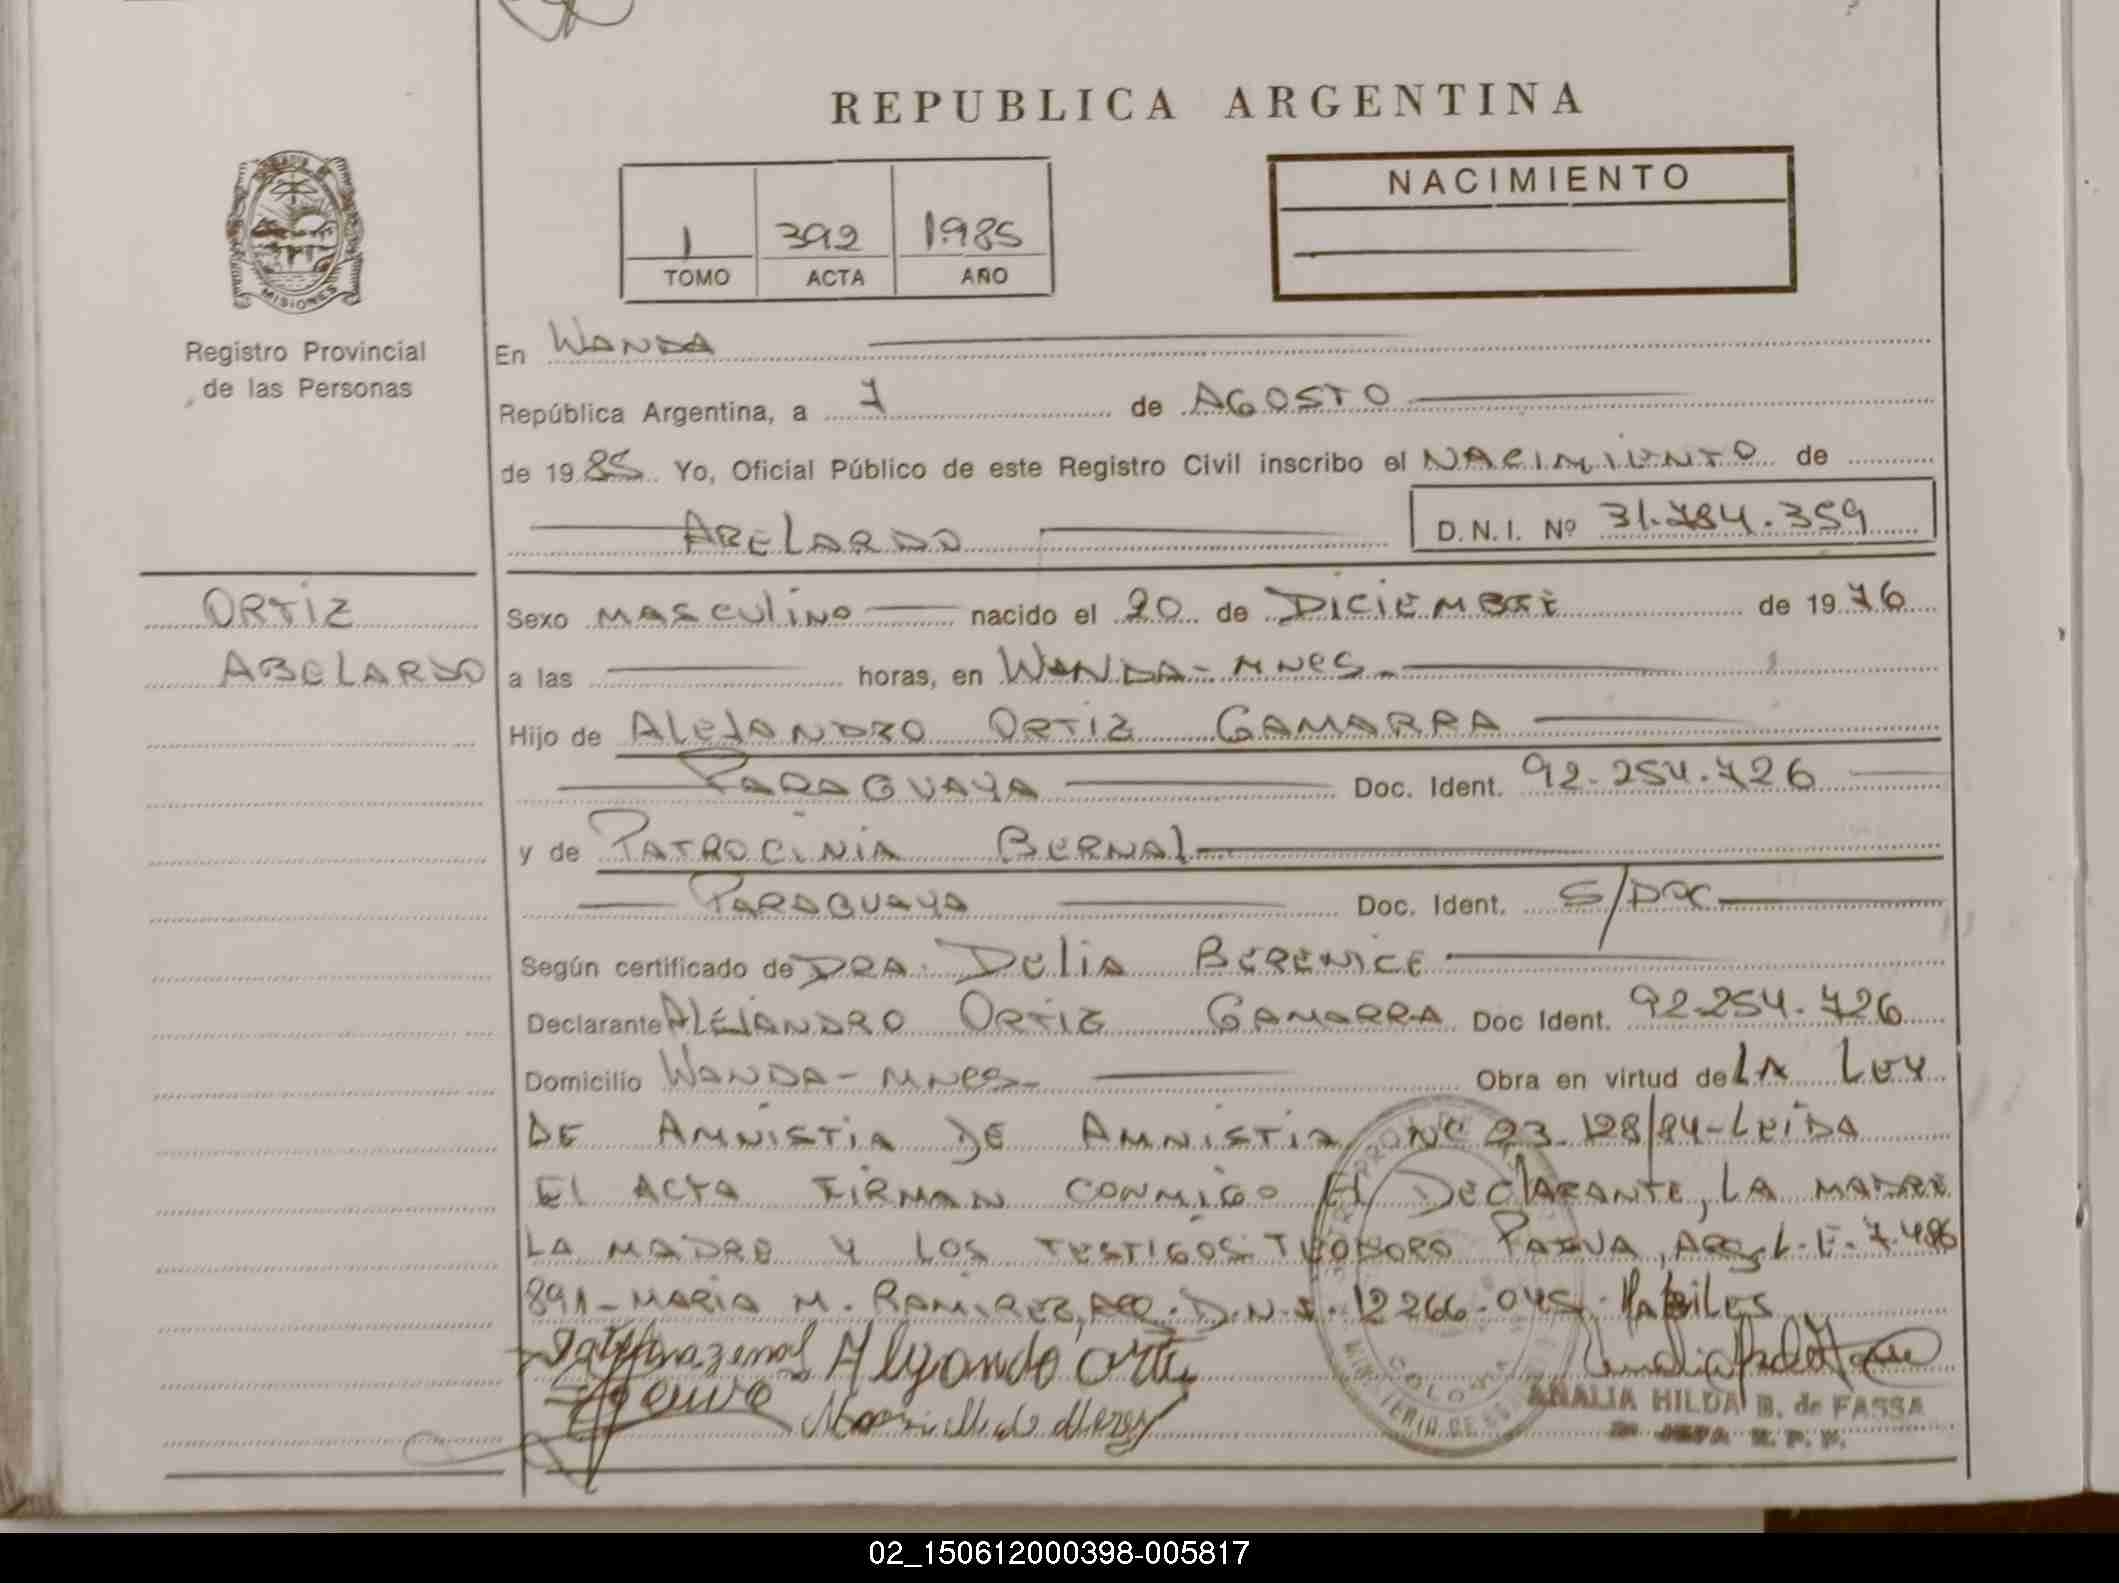 REPUBLICA ARGENTINA
NACIMIENTO
1 392 1.985
TOMO ACTA AÑO
MISIONES
Registro Provincial
de las Personas
En WANDA
República Argentina, a 7 de AGOSTO
de 1985 Yo, Oficial Público de este Registro Civil inscribo el NACIMIENTO de
ABELARDO D.N.I. Nº 31.784.359
ORTIZ
ABELARDO
Sexo MASCULINO nacido el 20 de DICIEMBRE de 1976
a las horas, en WANDA - MNES.
Hijo de ALEJANDRO ORTIZ GAMARRA
PARAGUAYA Doc. Ident. 92.254.726
y de PATROCINIA BERNAL
PARAGUAYA Doc. Ident. S/DOC
Según certificado de DRA. DELIA BERENICE
Declarante ALEJANDRO ORTIZ GAMARRA Doc Ident. 92.254.726
Domicilio WANDA - MNES - Obra en virtud de LA LEY
DE AMNISTIA DE AMNISTIA Nº 23.128/84 - LEIDA
EL ACTA FIRMAN CONMIGO EL DECLARANTE, LA MADRE
LA MADRE Y LOS TESTIGOS: TEODORO PAIVA, ARG. L.E. 7.486
891 - MARIA M. RAMIREZ, ARG. D.N.I. 12266.045. HABILES
Alejandro Orti
ANALIA HILDA B. de FASSA
02_150612000398-005817